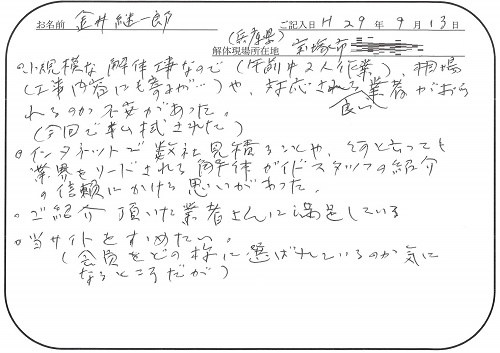 お名前 金井継一郎 ご記入日 H 29 年 9 月 13 日
(兵庫県)
解体現場所在地 宝塚市
○小規模な解体工事なので(午前中2人作業)、相場
(工事内容にも寄るが…)や、対応される業者がおら
良い
れるのか不安があった。
(今回で払拭された)
○インタネットで数社見積ることや、何と言っても
業界をリードされる解体ガイドスタッフの紹介
の信頼にかける思いがあった。
○ご紹介頂いた業者さんに満足している
○当サイトをすすめたい。
(会員をどの様に選ばれているのか気に
なるところだが)